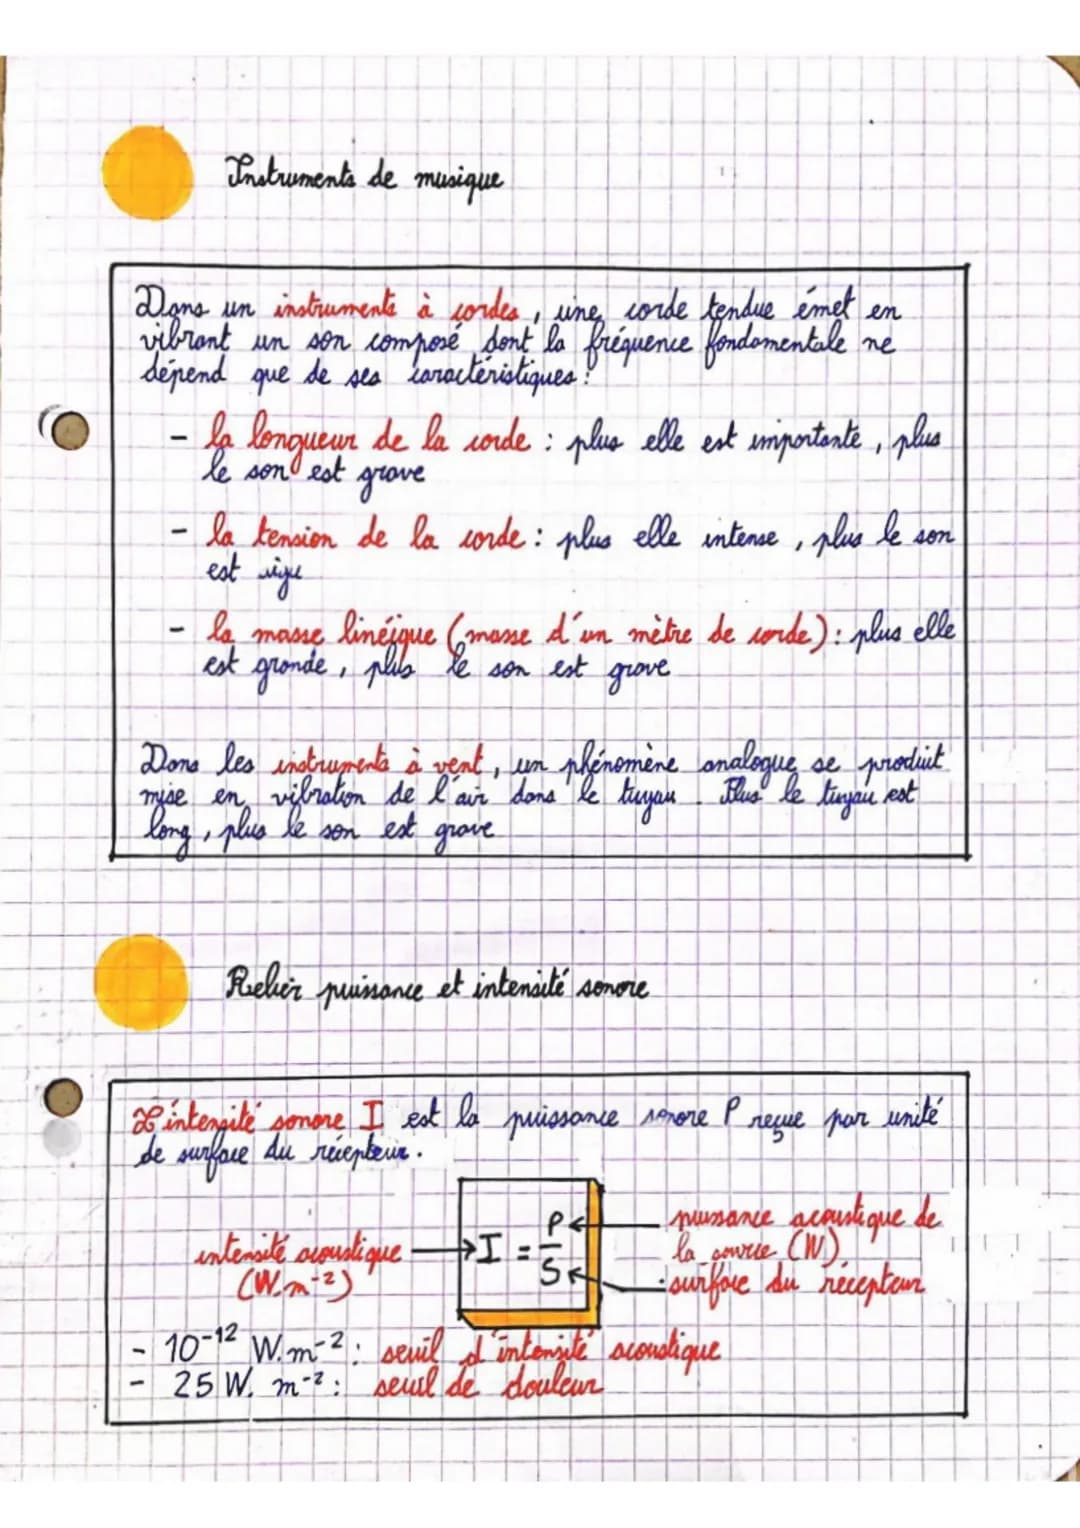 Instruments de musique
Dans un instruments à cordes, une corde tendue émet en
vibrant un son composé dont la fréquence fondamentale ne
dépend que de ses caractéristiques :
- la longueur de la corde : plus elle est importante, plus
le son est grave
- la tension de la corde : plus elle intense, plus le son
est aigu
- la masse linéique (masse d'un mètre de corde) : plus elle
est grande, plus le son est grave
Dans les instruments à vent, un phénomène analogue se produit
mise en vibration de l'air dans le tuyau. Plus le tuyau est
long, plus le son est grave
Relier puissance et intensité sonore
L'intensité sonore I est la puissance sonore P reçue par unité
de surface du récepteur.
intensité acoustique
(W.m⁻²)
I = P/S
puissance acoustique de
la source (W)
surface du récepteur
- 10⁻¹² W.m⁻² : seuil d'intensité acoustique
- 25 W. m⁻² : seuil de douleur